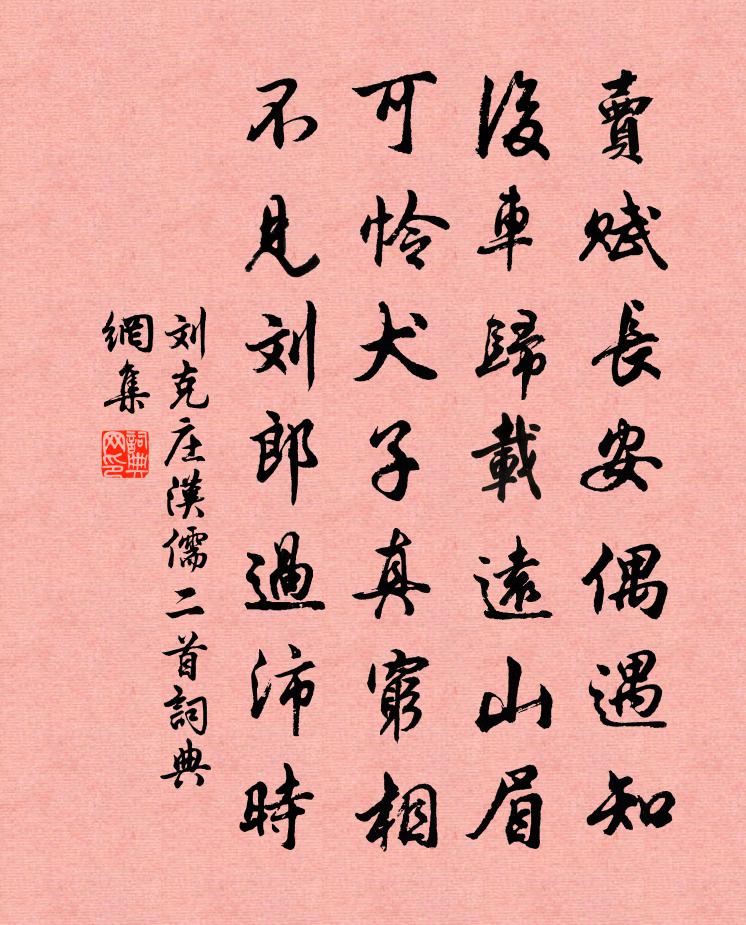 賣賦長安偶遇知
後車歸載遠山眉
可怜犬子真窮相
不見刘郎過沛時
刘克庄漢儒二首詞典
網集
詞典
网印